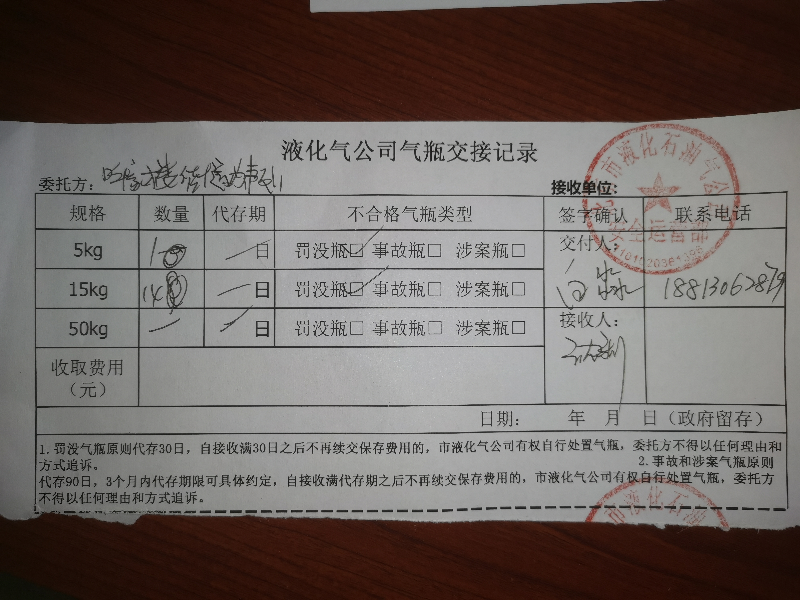 液化气公司气瓶交接记录
委托方：
接收单位:
市液化石油气公
安全运营部
规格 数量 代存期 不合格气瓶类型 签字确认 联系电话
5kg 1 日 罚没瓶□ 事故瓶□ 涉案瓶□ 交付人：
15kg 14 日 罚没瓶□ 事故瓶□ 涉案瓶□ 18813062879
50kg 一 日 罚没瓶□ 事故瓶□ 涉案瓶□ 接收人：
收取费用
（元）
日期： 年 月 日（政府留存）
1.罚没气瓶原则代存30日，自接收满30日之后不再续交保存费用的，市液化气公司有权自行处置气瓶，委托方不得以任何理由和
方式追诉。 2.事故和涉案气瓶原则
代存90日，3个月内代存期限可具体约定，自接收满代存期之后不再续交保存费用的，市液化气公司有权自行处置气瓶，委托方
不得以任何理由和方式追诉。
市液化石油气